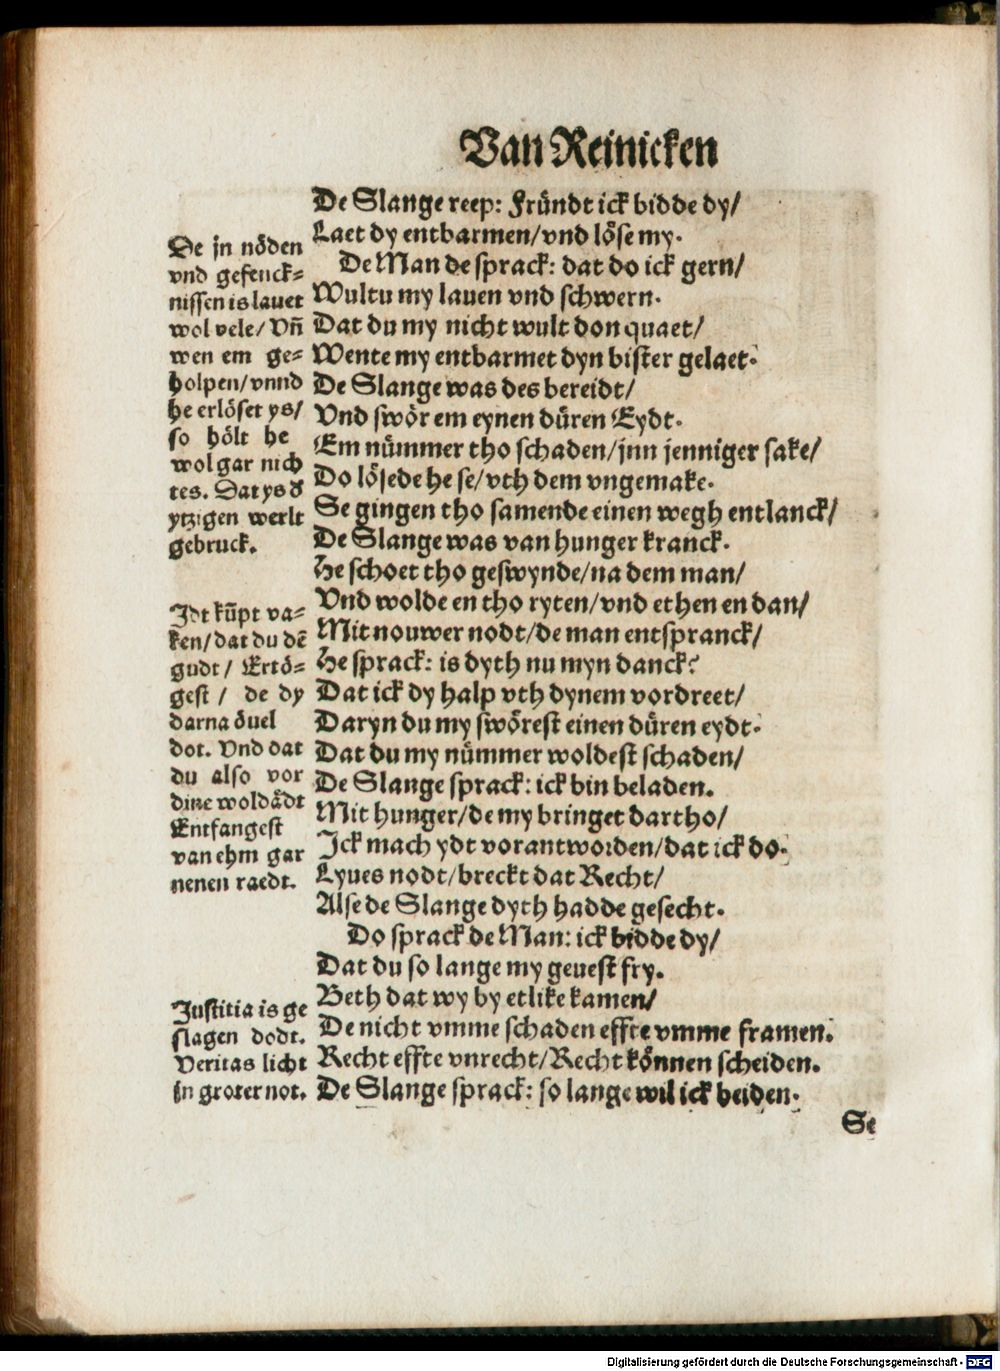 Van Reinicken
De Slange reep: Fründt ick bidde dy/
Laet dy entbarmen/vnd löse my.
De Man de sprack: dat do ick gern/
Wultu my lauen vnd schwern.
Dat du my nicht wult don quaet/
Wente my entbarmet dyn bister gelaet.
De Slange was des bereidt/
Vnd swör em eynen düren Eydt.
Em nümmer tho schaden/jnn jenniger sake/
Do lösede he se/vth dem vngemake.
Se gingen tho samende einen wegh entlanck/
De Slange was van hunger kranck.
He schoet tho geswynde/na dem man/
Vnd wolde en tho ryten/vnd ethen en dan/
Mit nouwer nodt/de man entspranck/
He sprack: is dyth nu myn danck?
Dat ick dy halp vth dynem vordreet/
Daryn du my swörest einen düren eydt.
Dat du my nümmer woldest schaden/
De Slange sprack: ick bin beladen.
Mit hunger/de my bringet dartho/
Ick mach ydt vorantworden/dat ick do.
Lyues nodt/breckt dat Recht/
Alse de Slange dyth hadde gesecht.
Do sprack de Man: ick bidde dy/
Dat du so lange my geuest fry.
Beth dat wy by etlike kamen/
De nicht vmme schaden effte vmme framen.
Recht effte vnrecht/Recht können scheiden.
De Slange sprack: so lange wil ick beiden.
Se
De jn nöden
vnd gefenck-
nissen is lauet
wol vele/Vñ
wen em ge-
holpen/vnnd
he erlöset ys/
so hölt he
wol gar nich
tes. Dat ys d
ytzigen werlt
gebruck.
Idt kũpt va-
ken/dat du dẽ
gudt/ Ertö-
gest / de dy
darna öuel
dot. Vnd dat
du also vor
dine woldãdt
Entfangest
van ehm gar
nenen raedt.
Justitia is ge
slagen dodt.
Veritas licht
jn groter not.
Digitalisierung gefördert durch die Deutsche Forschungsgemeinschaft - DFG